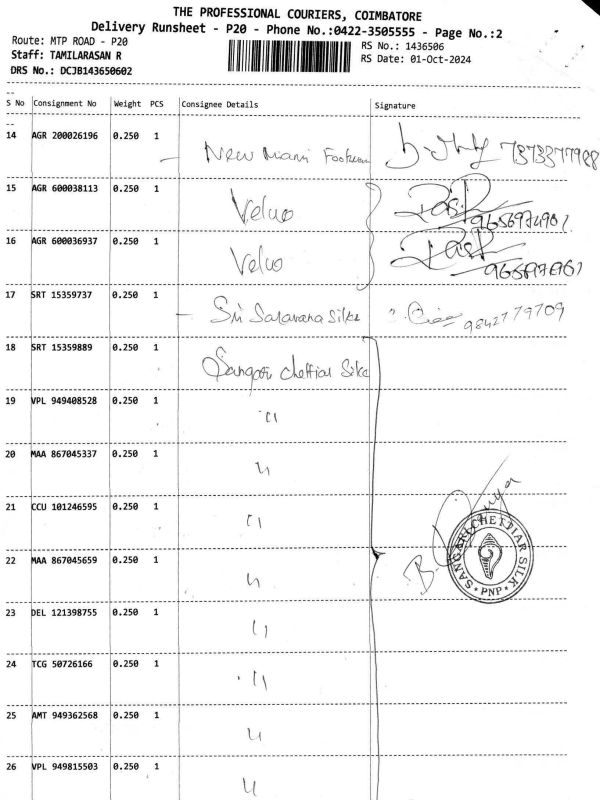 THE PROFESSIONAL COURIERS, COIMBATORE
Delivery Runsheet - P20 - Phone No.:0422-3505555 - Page No.:2
Route: MTP ROAD - P20 RS No.: 1436506
Staff: TAMILARASAN R RS Date: 01-Oct-2024
DRS No.: DCJB143650602
S No Consignment No Weight PCS Consignee Details Signature
14 AGR 200026196 0.250 1 New Mani 7373377988
15 AGR 600038113 0.250 1 Velvo
16 AGR 600036937 0.250 1 Velvo
17 SRT 15359737 0.250 1 Sri Saravana Silks 9842779709
18 SRT 15359889 0.250 1 Chettiar Silks
19 VPL 949408528 0.250 1 "
20 MAA 867045337 0.250 1 "
21 CCU 101246595 0.250 1 "
22 MAA 867045659 0.250 1 "
SANGARI CHETTIAR SILK
* PNP *
23 DEL 121398755 0.250 1 "
24 TCG 50726166 0.250 1 "
25 AMT 949362568 0.250 1 "
26 VPL 949815503 0.250 1 "